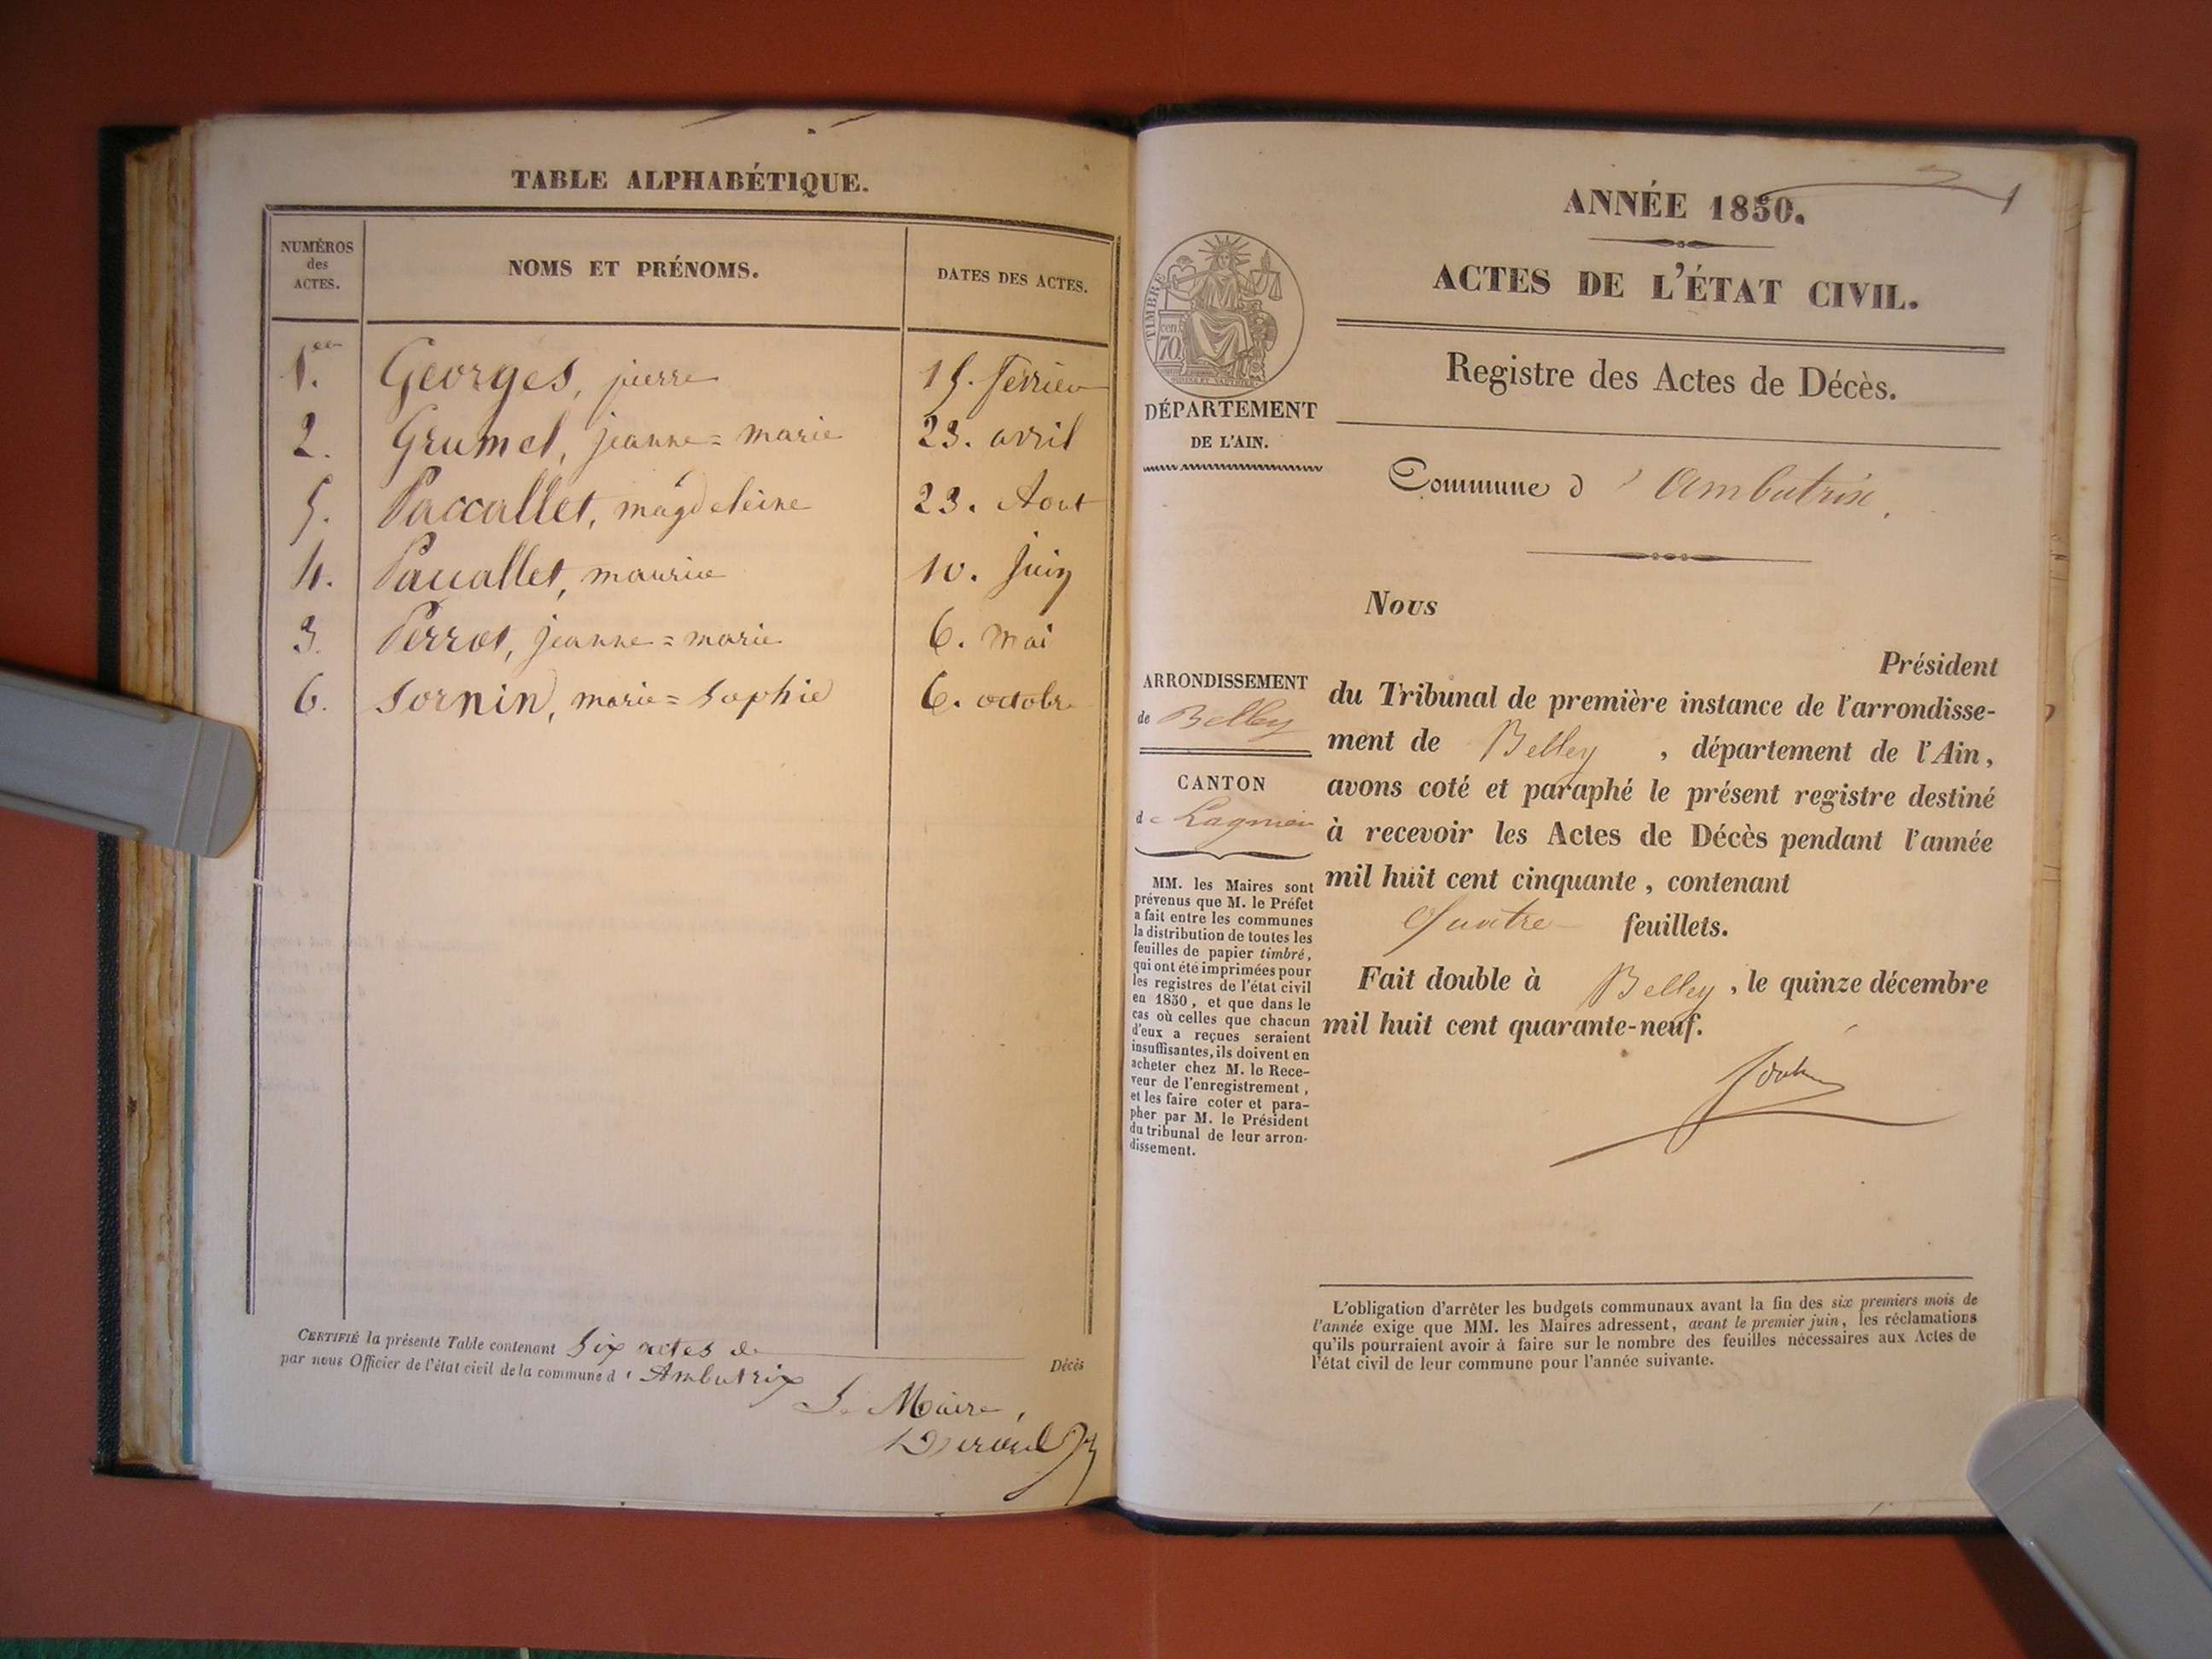 TABLE ALPHABÉTIQUE.
NUMÉROS des ACTES. NOMS ET PRÉNOMS. DATES DES ACTES.
1.er Georges, pierre 15. février
2. Grumet, jeanne=marie 23. avril
5. Paccallet, magdeleine 23. Aout
4. Paccallet, maurice 10. juin
3. Perrot, jeanne=marie 6. mai
6. Sornin, marie=Sophie 6. octobre
CERTIFIÉ la présente Table contenant Six actes de Décès
par nous Officier de l'état civil de la commune d' Ambutrix
Le Maire,
ANNÉE 1850.
1
ACTES DE L'ÉTAT CIVIL.
Registre des Actes de Décès.
TIMBRE
cen. 70
DÉPARTEMENT
DE L'AIN.
Commune d' Ambutrix.
Nous
Président
du Tribunal de première instance de l'arrondisse-
ment de Belley, département de l'Ain,
avons coté et paraphé le présent registre destiné
à recevoir les Actes de Décès pendant l'année
mil huit cent cinquante, contenant
Quatre feuillets.
Fait double à Belley, le quinze décembre
mil huit cent quarante-neuf.
ARRONDISSEMENT
de Belley
CANTON
de Lagnieu
MM. les Maires sont
prévenus que M. le Préfet
a fait entre les communes
la distribution de toutes les
feuilles de papier timbré,
qui ont été imprimées pour
les registres de l'état civil
en 1850, et que dans le
cas où celles que chacun
d'eux a reçues seraient
insuffisantes, ils doivent en
acheter chez M. le Rece-
veur de l'enregistrement,
et les faire coter et para-
pher par M. le Président
du tribunal de leur arron-
dissement.
L'obligation d'arrêter les budgets communaux avant la fin des six premiers mois de
l'année exige que MM. les Maires adressent, avant le premier juin, les réclamations
qu'ils pourraient avoir à faire sur le nombre des feuilles nécessaires aux Actes de
l'état civil de leur commune pour l'année suivante.